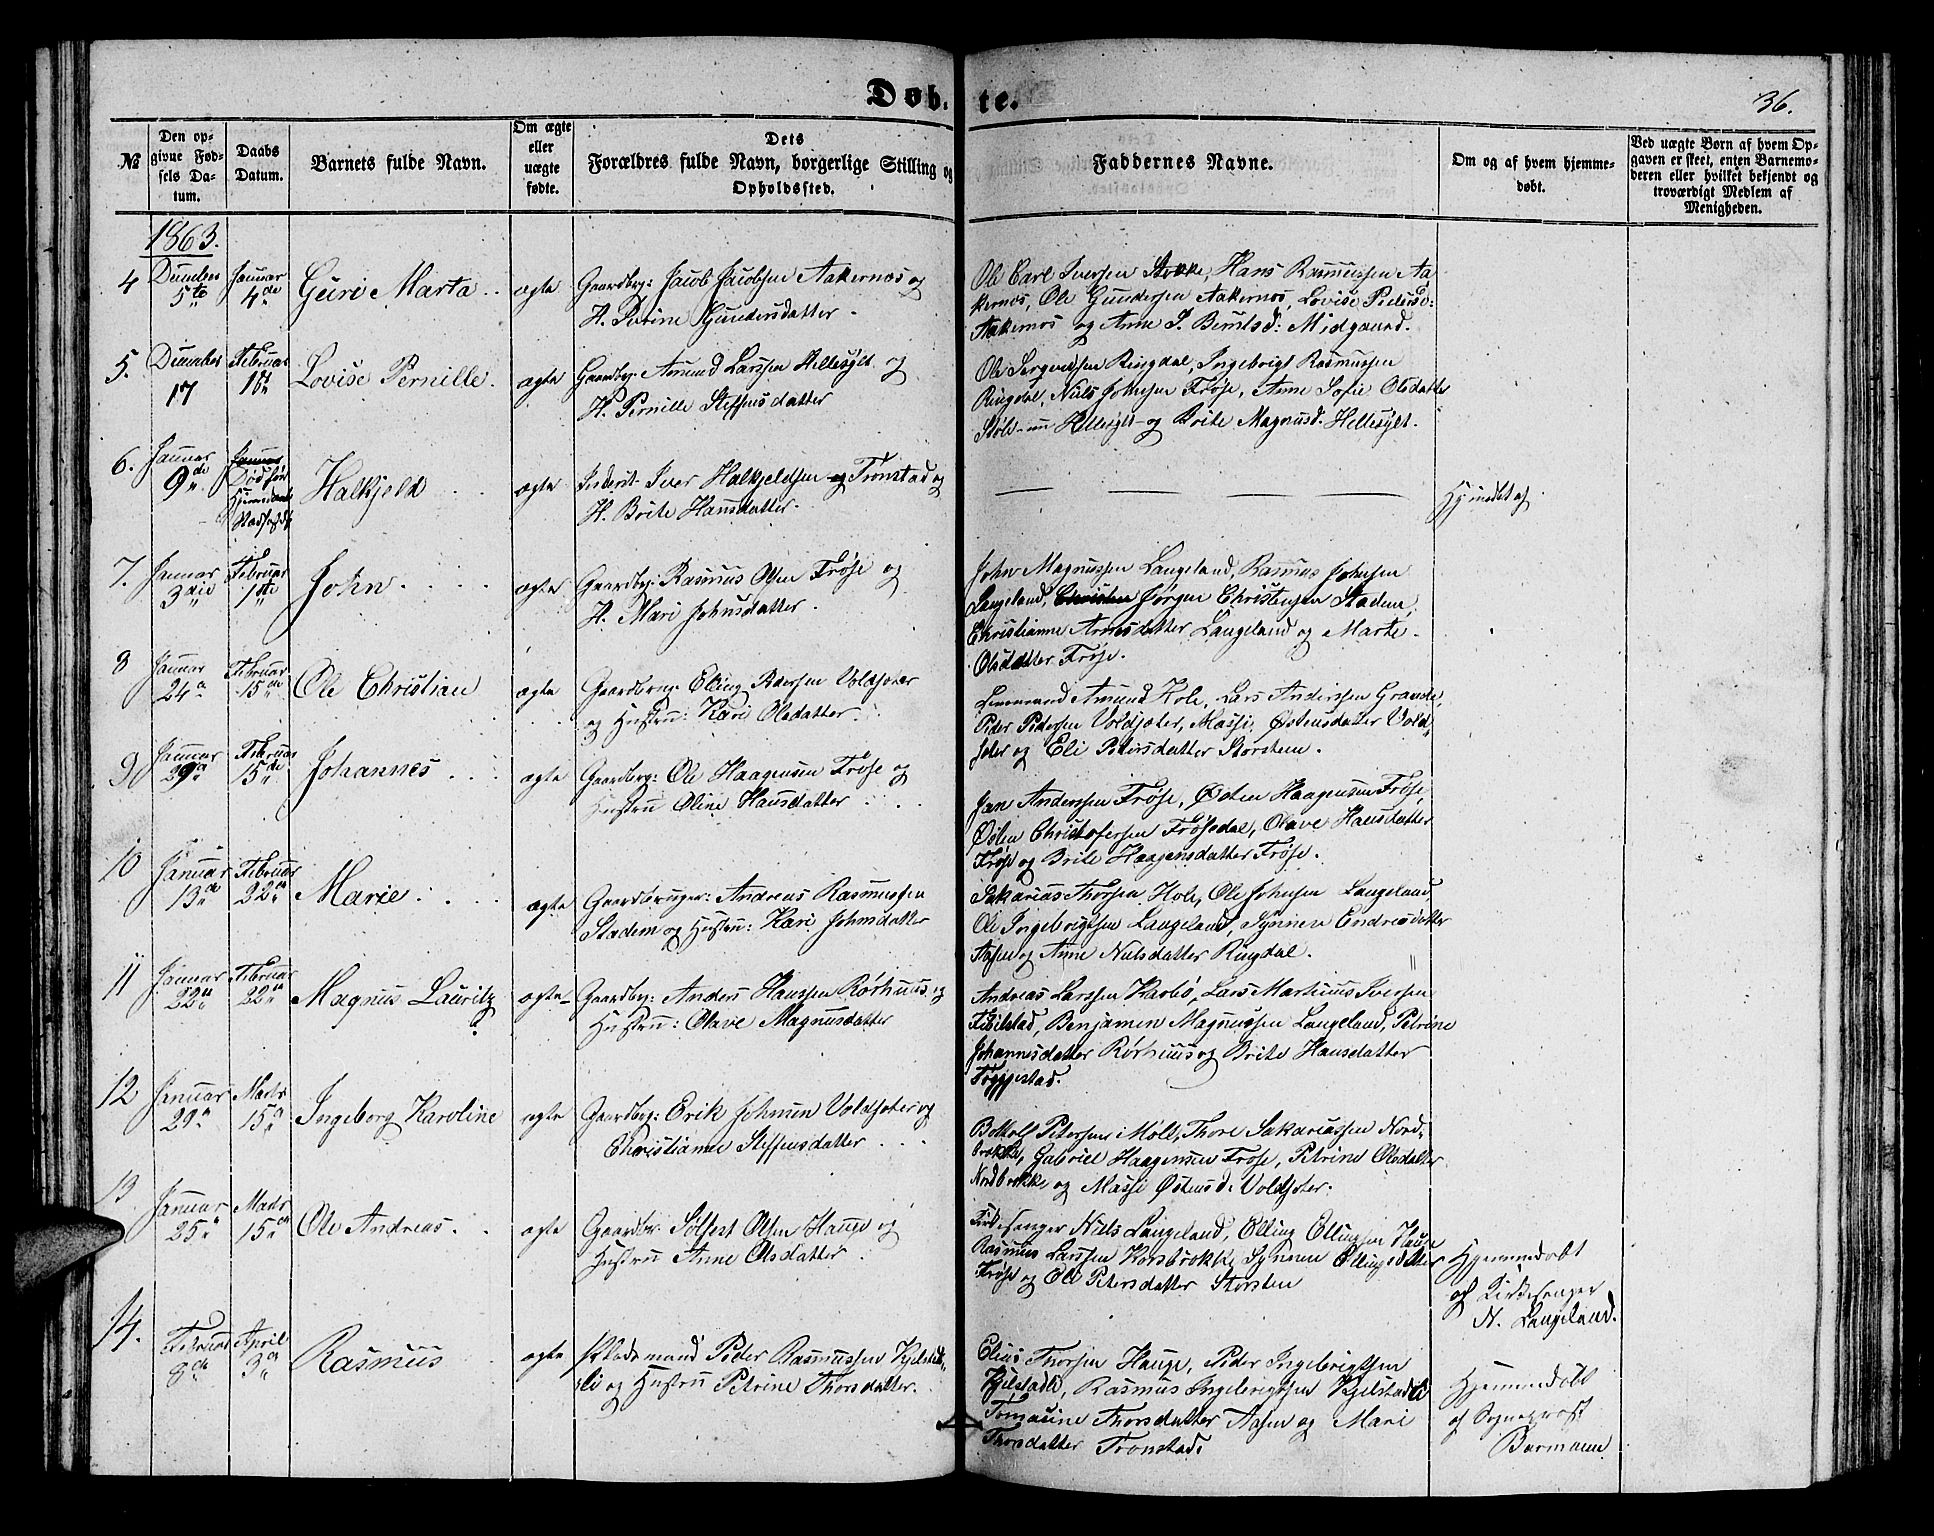 Døb-te.
36.
№
Den opgivne Fødsels Datum.
Daabs Datum.
Barnets fulde Navn.
Om ægte eller uægte fødte.
Dets Forældres fulde Navn, borgerlige Stilling og Opholdssted.
Faddernes Navne.
Om og af hvem hjemmedøbt.
Ved uægte Børn af hvem Opgaven er skeet, enten Barnemoderen eller hvilket bekjendt og troværdigt Medlem af Menigheden.
1863.
4
December 5te
Januar 4de
Guri Marta
ægte
Gaardbr: Jacob Jacobsen Aakernes og
H. Perine Gundersdatter
Ole Carl Iversen Stokke, Hans Rasmussen Aa
kernes, Ole Gundersen Aakernes, Lovise Pedersd:
Aakernes og Anne S. Berntsd: Midgaard.
5.
December 17
Februar 1st
Lovise Pernille.
ægte
Gaardbr: Amund Larssen Hellesylt og
H. Pernille Steffensdatter
Ole Ringdal, Ingebrigt Rasmussen
Ringdal, Niels Johnsen Frøse, Anne Sofie Olsdatter
Hellesylt og Brite Magnusd. Hellesylt.
6.
Januar 9de
Død før
Halkjeld
ægte
Iver Halkjeldsen Tronstad og
H. Brite Hansdatter.
Hjemdøbt af
7.
Januar 3die
Februar 1ste
John
ægte
Gaardbr: Rasmus Olsen Frøse og
H. Mari Johnsdatter.
John Magnussen Langeland, Rasmus Johnsen
Langeland, Jørgen Christensen Stadem,
Christianne Arnesdatter Langeland og Marte
Olsdatter Frøse.
8
Januar 24
Februar 15de
Ole Christian
ægte
Gaardbrug: Elling Pedersen Voldsæter
og Hustru: Kari Olsdatter
Lensmand Amund Hole, Lars Anderssen Grande,
Peder Pedersen Voldsæter, Massi Østensdatter Vold
sæter og Eli Petersdatter Storsten.
9
Januar 29
Februar 15de
Johannes
ægte
Gaardbr: Ole Haagensen Frøse og
Hustru Oline Hansdatter
Jan Anderssen Frøse, Østen Haagensen Frøse,
Østen Christofersen Frøsedal, Olave Hansdatter
Frøse og Brite Haagensdatter Frøse.
10
Januar 13de
Februar 22
Marie
ægte
Gaardbruger: Andreas Rasmussen
Stadem og Hustru: Kari Johnsdatter
Sakarias Thorsen Hole, Ole Johnsen Langeland,
Ole Ingebrigtsen Langeland, Synneve Endresdatter
Aasen og Anne Nielsdatter Ringdal.
11
Januar 22
Februar 22
Magnus Lauritz
ægte
Gaardbr: Anders Hanssen Rørhuus og
Hustru: Olave Magnusdatter
Andreas Larssen Karbø, Lars Martinus Iversen
Fivelstad, Benjamen Magnussen Langeland, Petrine
Johannesdatter Rørhuus og Brite Hansdatter
Tryggestad.
12
Januar 29
Marts 15
Ingeborg Karoline
ægte
Gaardbr: Erik Johnsen Voldsæter og
Christianne Steffensdatter
Bottolf Petersen Møll, Thore Sakariassen Nord-
brokke, Gabriel Haagensen Frøse, Petrine Olsdatter
Nordbrokke og Massi Østensd. Voldsæter.
13
Januar 25
Marts 15
Ole Andreas
ægte
Gaardbr: Sølfest Olsen Hauge og
Hustru Anne Olsdatter
Kirkesanger Niels Langeland, Elling Ellingsen Hauge
Rasmus Larssen Korsbrokke, Synneve Ellingsdatter
Frøse og Eli Petersdatter Storsten
Hjemmedøbt
af Kirkesanger
N. Langeland.
14.
Februar 8de
April 3
Rasmus
ægte
Pladsmand Peder Rasmussen Kjelstad-
li og Hustru Petrine Thorsdatter.
Elias Thorsen Hauge, Peder Ingebrigtsen
Kjelstadli, Rasmus Ingebrigtsen Kjelstadli
Tomasine Thorsdatter Aasen og Mari
Thorsdatter Tronstad.
Hjemmedøbt
af Sogneprest
Barmann